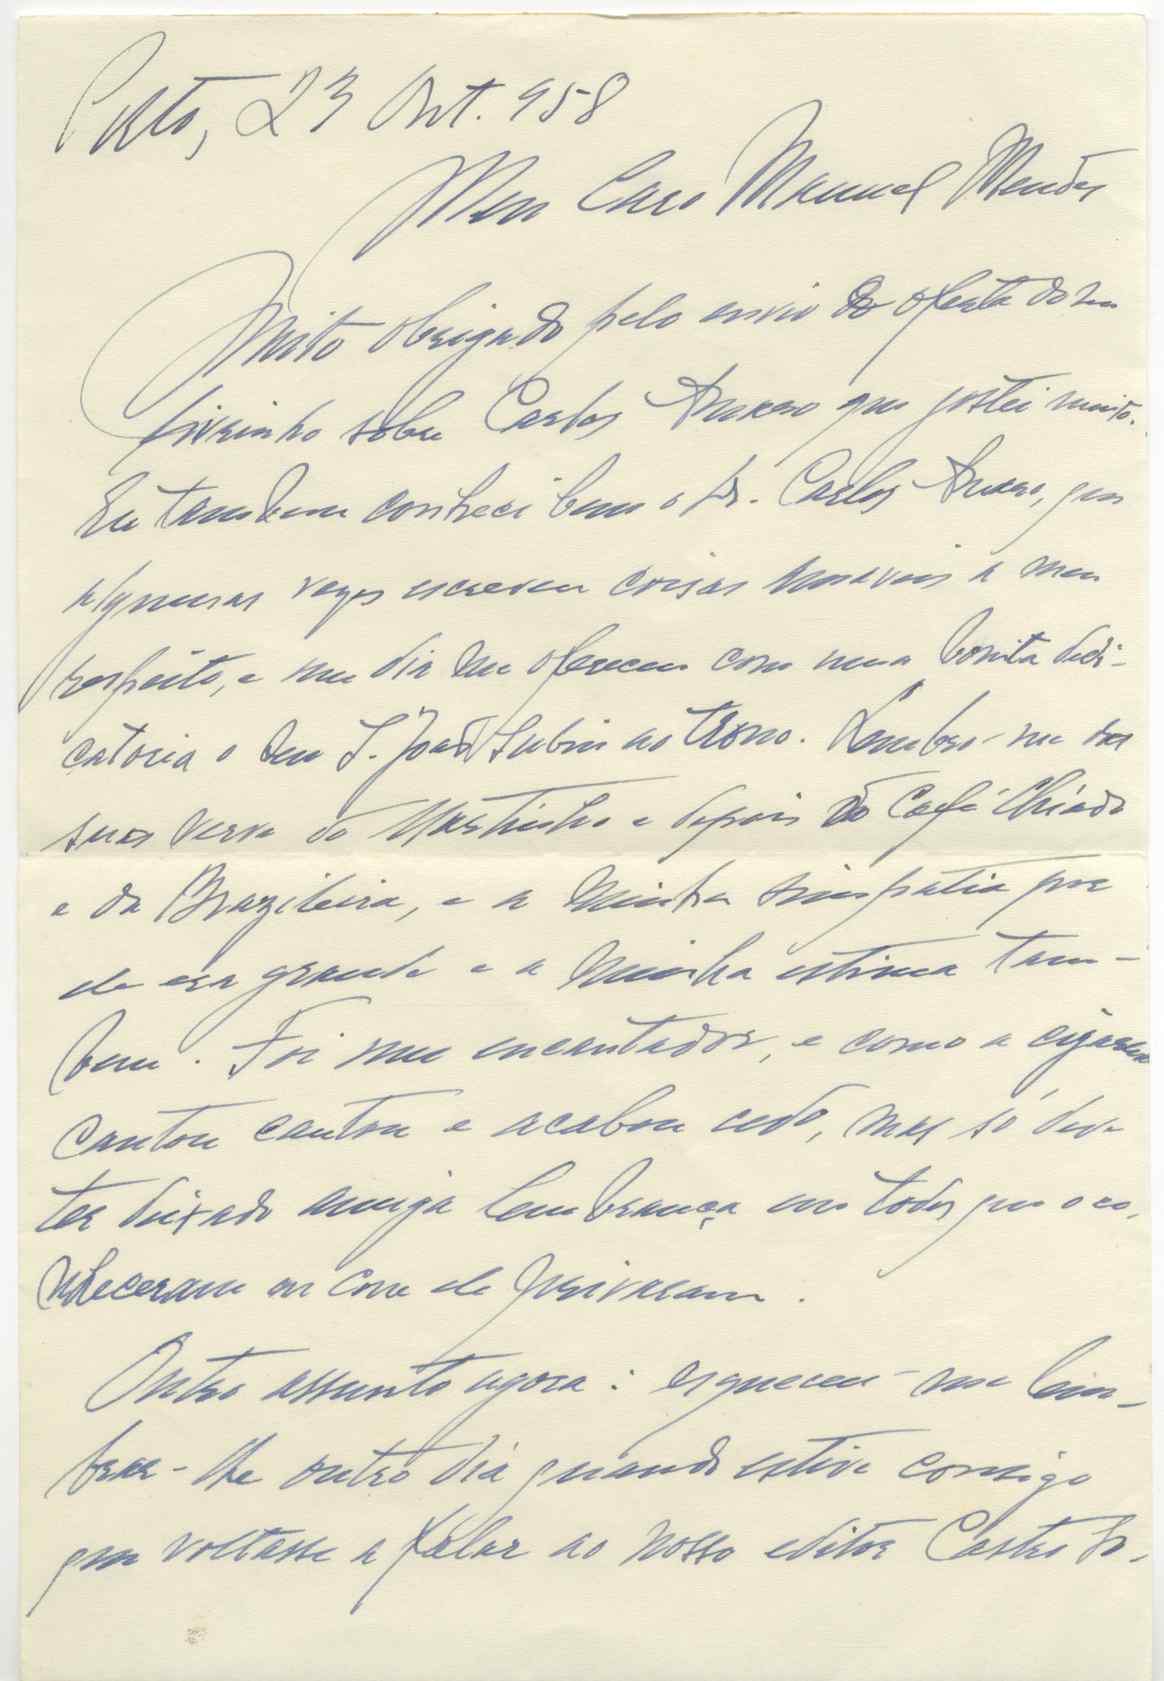 Porto, 23 Out. 958
Meu Caro Manuel Mendes
Muito obrigado pelo envio da oferta do seu
livrinho sobre Carlos Amaro que gostei muito.
Eu tambem conheci bem o Dr. Carlos Amaro, que
algumas vezes escreveu coisas amaveis a meu
respeito, e um dia me ofereceu com uma bonita dedi-
catoria o seu S. João Subiu ao trono. Lembro-me das
suas do Martinho e depois do Café Chiado
e da Brazileira, e a minha simpatia por
ele era grande e a minha estima tam-
bem. Foi um encantador, e como a cigarra
cantou cantou e acabou cedo, mas só deve
ter deixado amiga lembrança em todos que o co-
nheceram ou com ele privaram.
Outro assunto agora: esqueceu-me lem-
brar-lhe outro dia quando estive consigo
que voltasse a falar ao nosso editor Castro So-